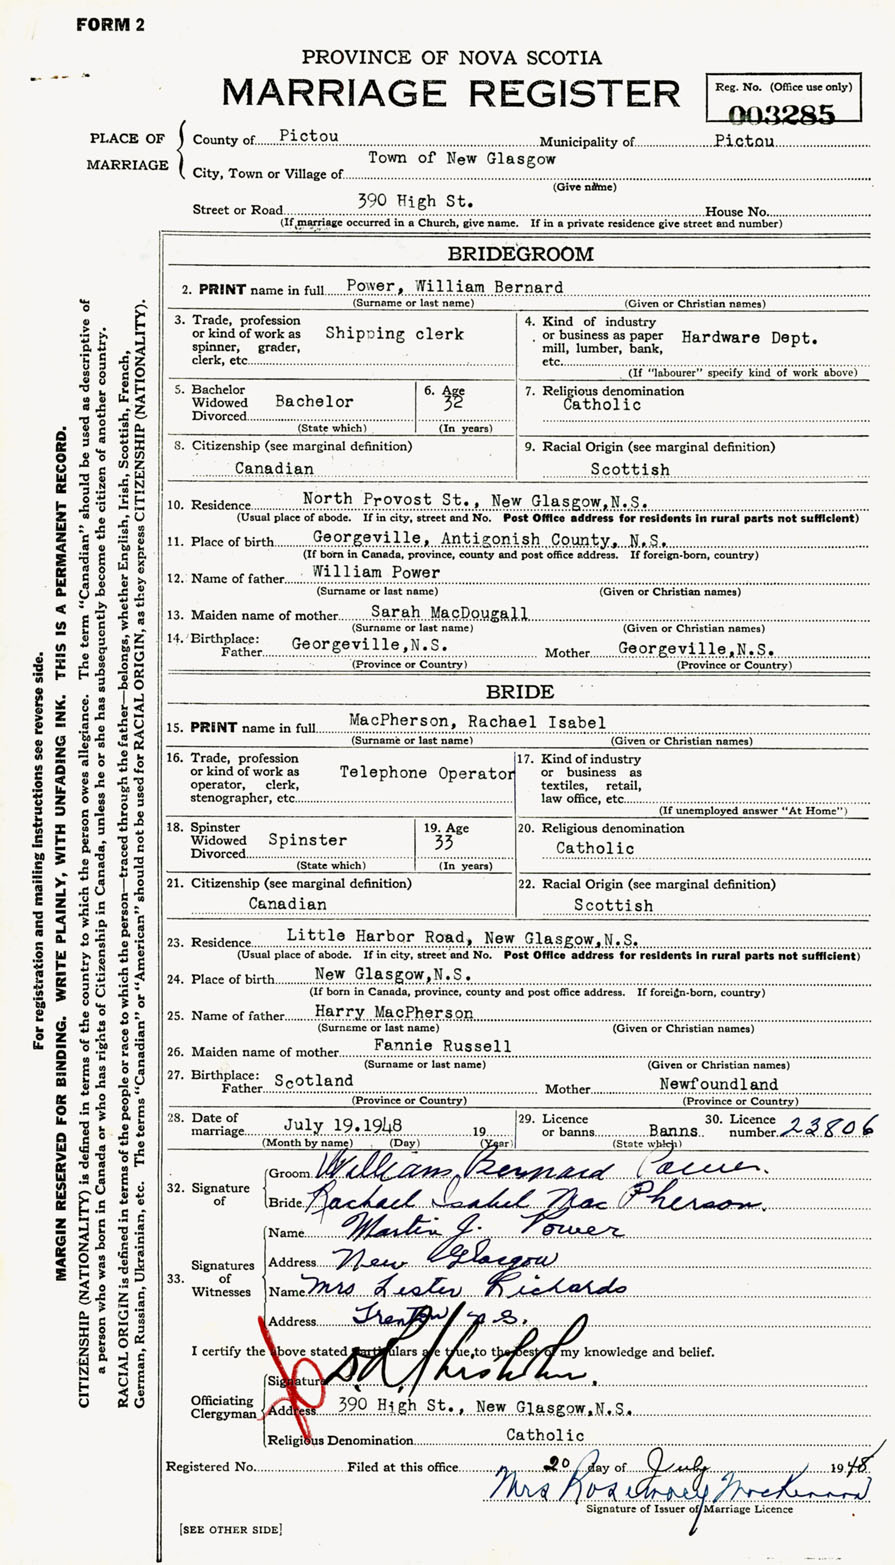 FORM 2
PROVINCE OF NOVA SCOTIA
MARRIAGE REGISTER
Reg. No. (Office use only)
003285
PLACE OF MARRIAGE
County of Pictou Municipality of Pictou
City, Town or Village of Town of New Glasgow
(Give name)
Street or Road 390 High St. House No.
(If marriage occurred in a Church, give name. If in a private residence give street and number)
BRIDEGROOM
2. PRINT name in full Power, William Bernard
(Surname or last name) (Given or Christian names)
3. Trade, profession or kind of work as spinner, grader, clerk, etc. Shipping clerk
4. Kind of industry or business as paper mill, lumber, bank, etc. Hardware Dept.
(If "labourer" specify kind of work above)
5. Bachelor Widowed Divorced Bachelor
(State which)
6. Age 32
(In years)
7. Religious denomination Catholic
8. Citizenship (see marginal definition)
Canadian
9. Racial Origin (see marginal definition)
Scottish
10. Residence North Provost St., New Glasgow,N.S.
(Usual place of abode. If in city, street and No. Post Office address for residents in rural parts not sufficient)
11. Place of birth Georgeville, Antigonish County, N.S.
(If born in Canada, province, county and post office address. If foreign-born, country)
12. Name of father William Power
(Surname or last name) (Given or Christian names)
13. Maiden name of mother Sarah MacDougall
(Surname or last name) (Given or Christian names)
14. Birthplace: Father Georgeville,N.S. Mother Georgeville,N.S.
(Province or Country) (Province or Country)
BRIDE
15. PRINT name in full MacPherson, Rachael Isabel
(Surname or last name) (Given or Christian names)
16. Trade, profession or kind of work as operator, clerk, stenographer, etc. Telephone Operator
17. Kind of industry or business as textiles, retail, law office, etc.
(If unemployed answer "At Home")
18. Spinster Widowed Divorced Spinster
(State which)
19. Age 33
(In years)
20. Religious denomination
Catholic
21. Citizenship (see marginal definition)
Canadian
22. Racial Origin (see marginal definition)
Scottish
23. Residence Little Harbor Road, New Glasgow,N.S.
(Usual place of abode. If in city, street and No. Post Office address for residents in rural parts not sufficient)
24. Place of birth New Glasgow,N.S.
(If born in Canada, province, county and post office address. If foreign-born, country)
25. Name of father Harry MacPherson
(Surname or last name) (Given or Christian names)
26. Maiden name of mother Fannie Russell
(Surname or last name) (Given or Christian names)
27. Birthplace: Father Scotland Mother Newfoundland
(Province or Country) (Province or Country)
28. Date of marriage July 19.1948 19
(Month by name) (Day) (Year)
29. Licence or banns Banns
(State which)
30. Licence number 23806
32. Signature of
Groom William Bernard Power.
Bride Rachael Isabel MacPherson.
33. Signatures of Witnesses
Name Martin J. Power
Address New Glasgow
Name Mrs Lester Richards
Address Trenton N.S.
I certify the above stated particulars are true to the best of my knowledge and belief.
Officiating Clergyman
Signature
Address 390 High St., New Glasgow,N.S.
Religious Denomination Catholic
Registered No. Filed at this office 20 day of July 1948
Mrs
Signature of Issuer of Marriage Licence
[SEE OTHER SIDE]
For registration and mailing instructions see reverse side.
MARGIN RESERVED FOR BINDING. WRITE PLAINLY, WITH UNFADING INK. THIS IS A PERMANENT RECORD.
CITIZENSHIP (NATIONALITY) is defined in terms of the country to which the person owes allegiance. The term "Canadian" should be used as descriptive of
a person who was born in Canada or who has rights of Citizenship in Canada, unless he or she has subsequently become the citizen of another country.
RACIAL ORIGIN is defined in terms of the people or race to which the person—traced through the father—belongs, whether English, Irish, Scottish, French,
German, Russian, Ukrainian, etc. The terms "Canadian" or "American" should not be used for RACIAL ORIGIN, as they express CITIZENSHIP (NATIONALITY).